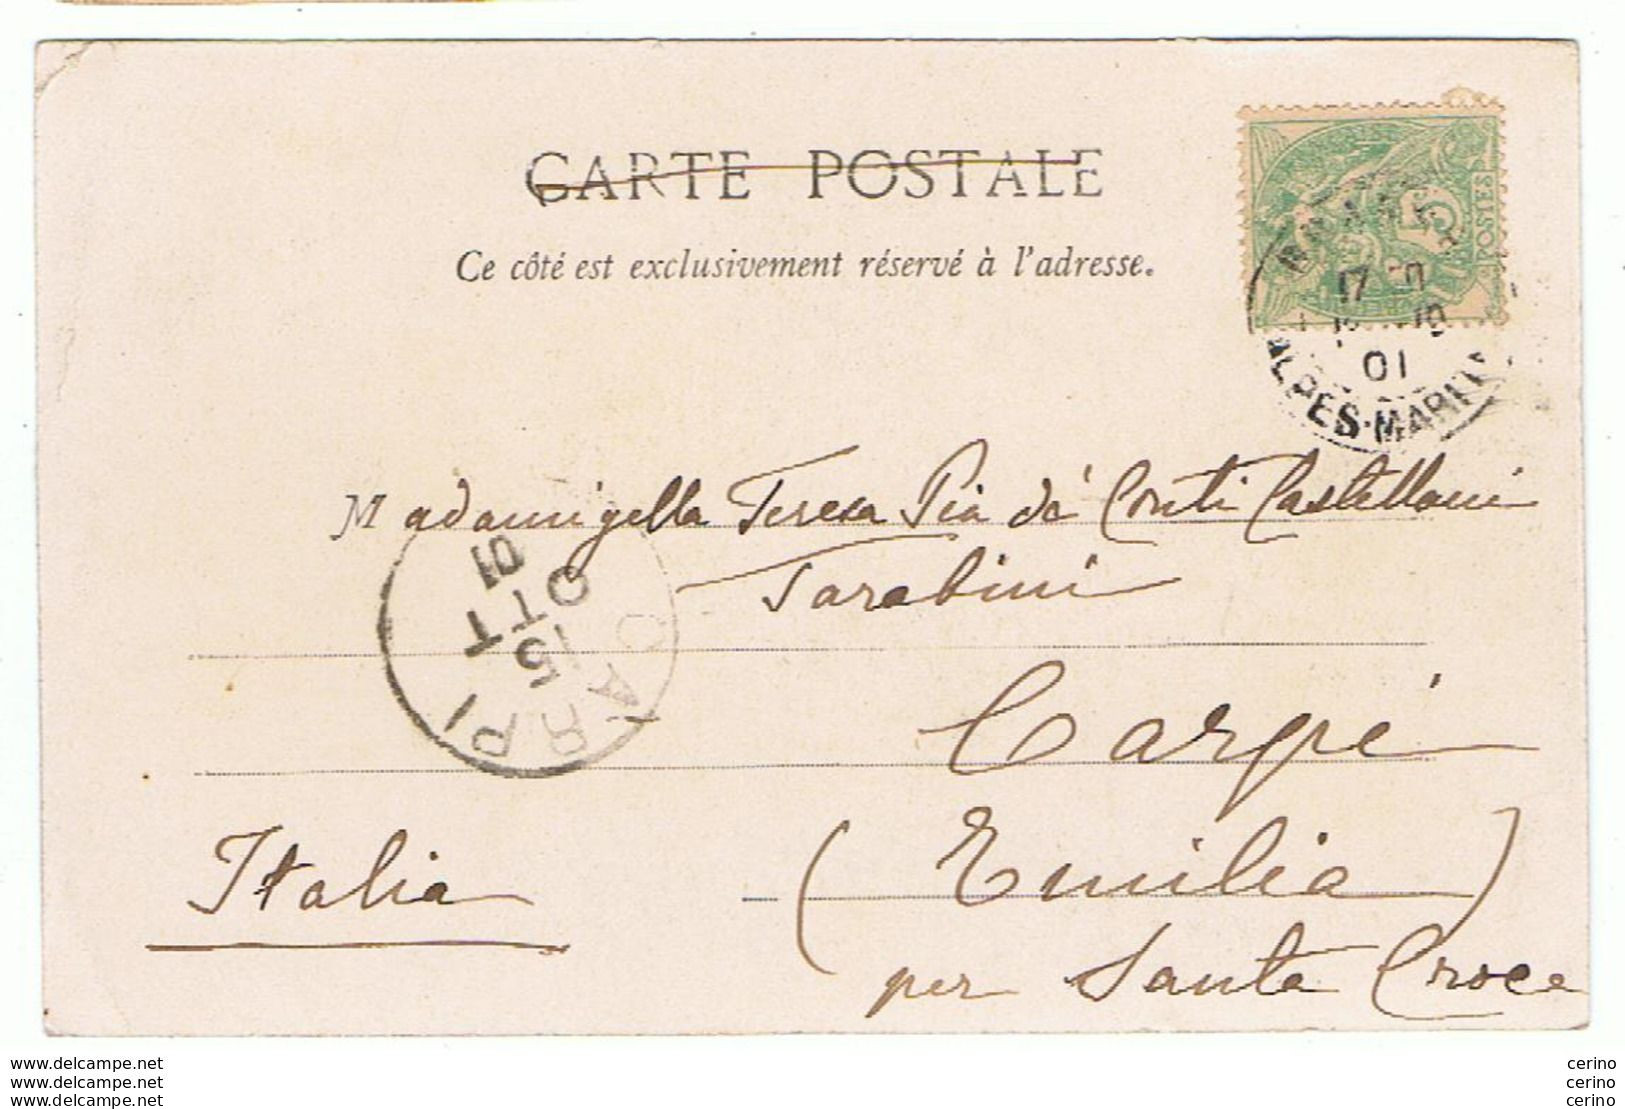 CARTE POSTALE
Ce côté est exclusivement réservé à l'adresse.
5
POSTES
17
01
ALPES-MARITI
Madamigella Teresa Pia dé Conti Castellani
Tarabini
CARPI
15
OTT
01
Carpi
Italia
(Emilia)
per Santa Croce
www.delcampe.net
www.delcampe.net
www.delcampe.net
cerino
cerino
cerino